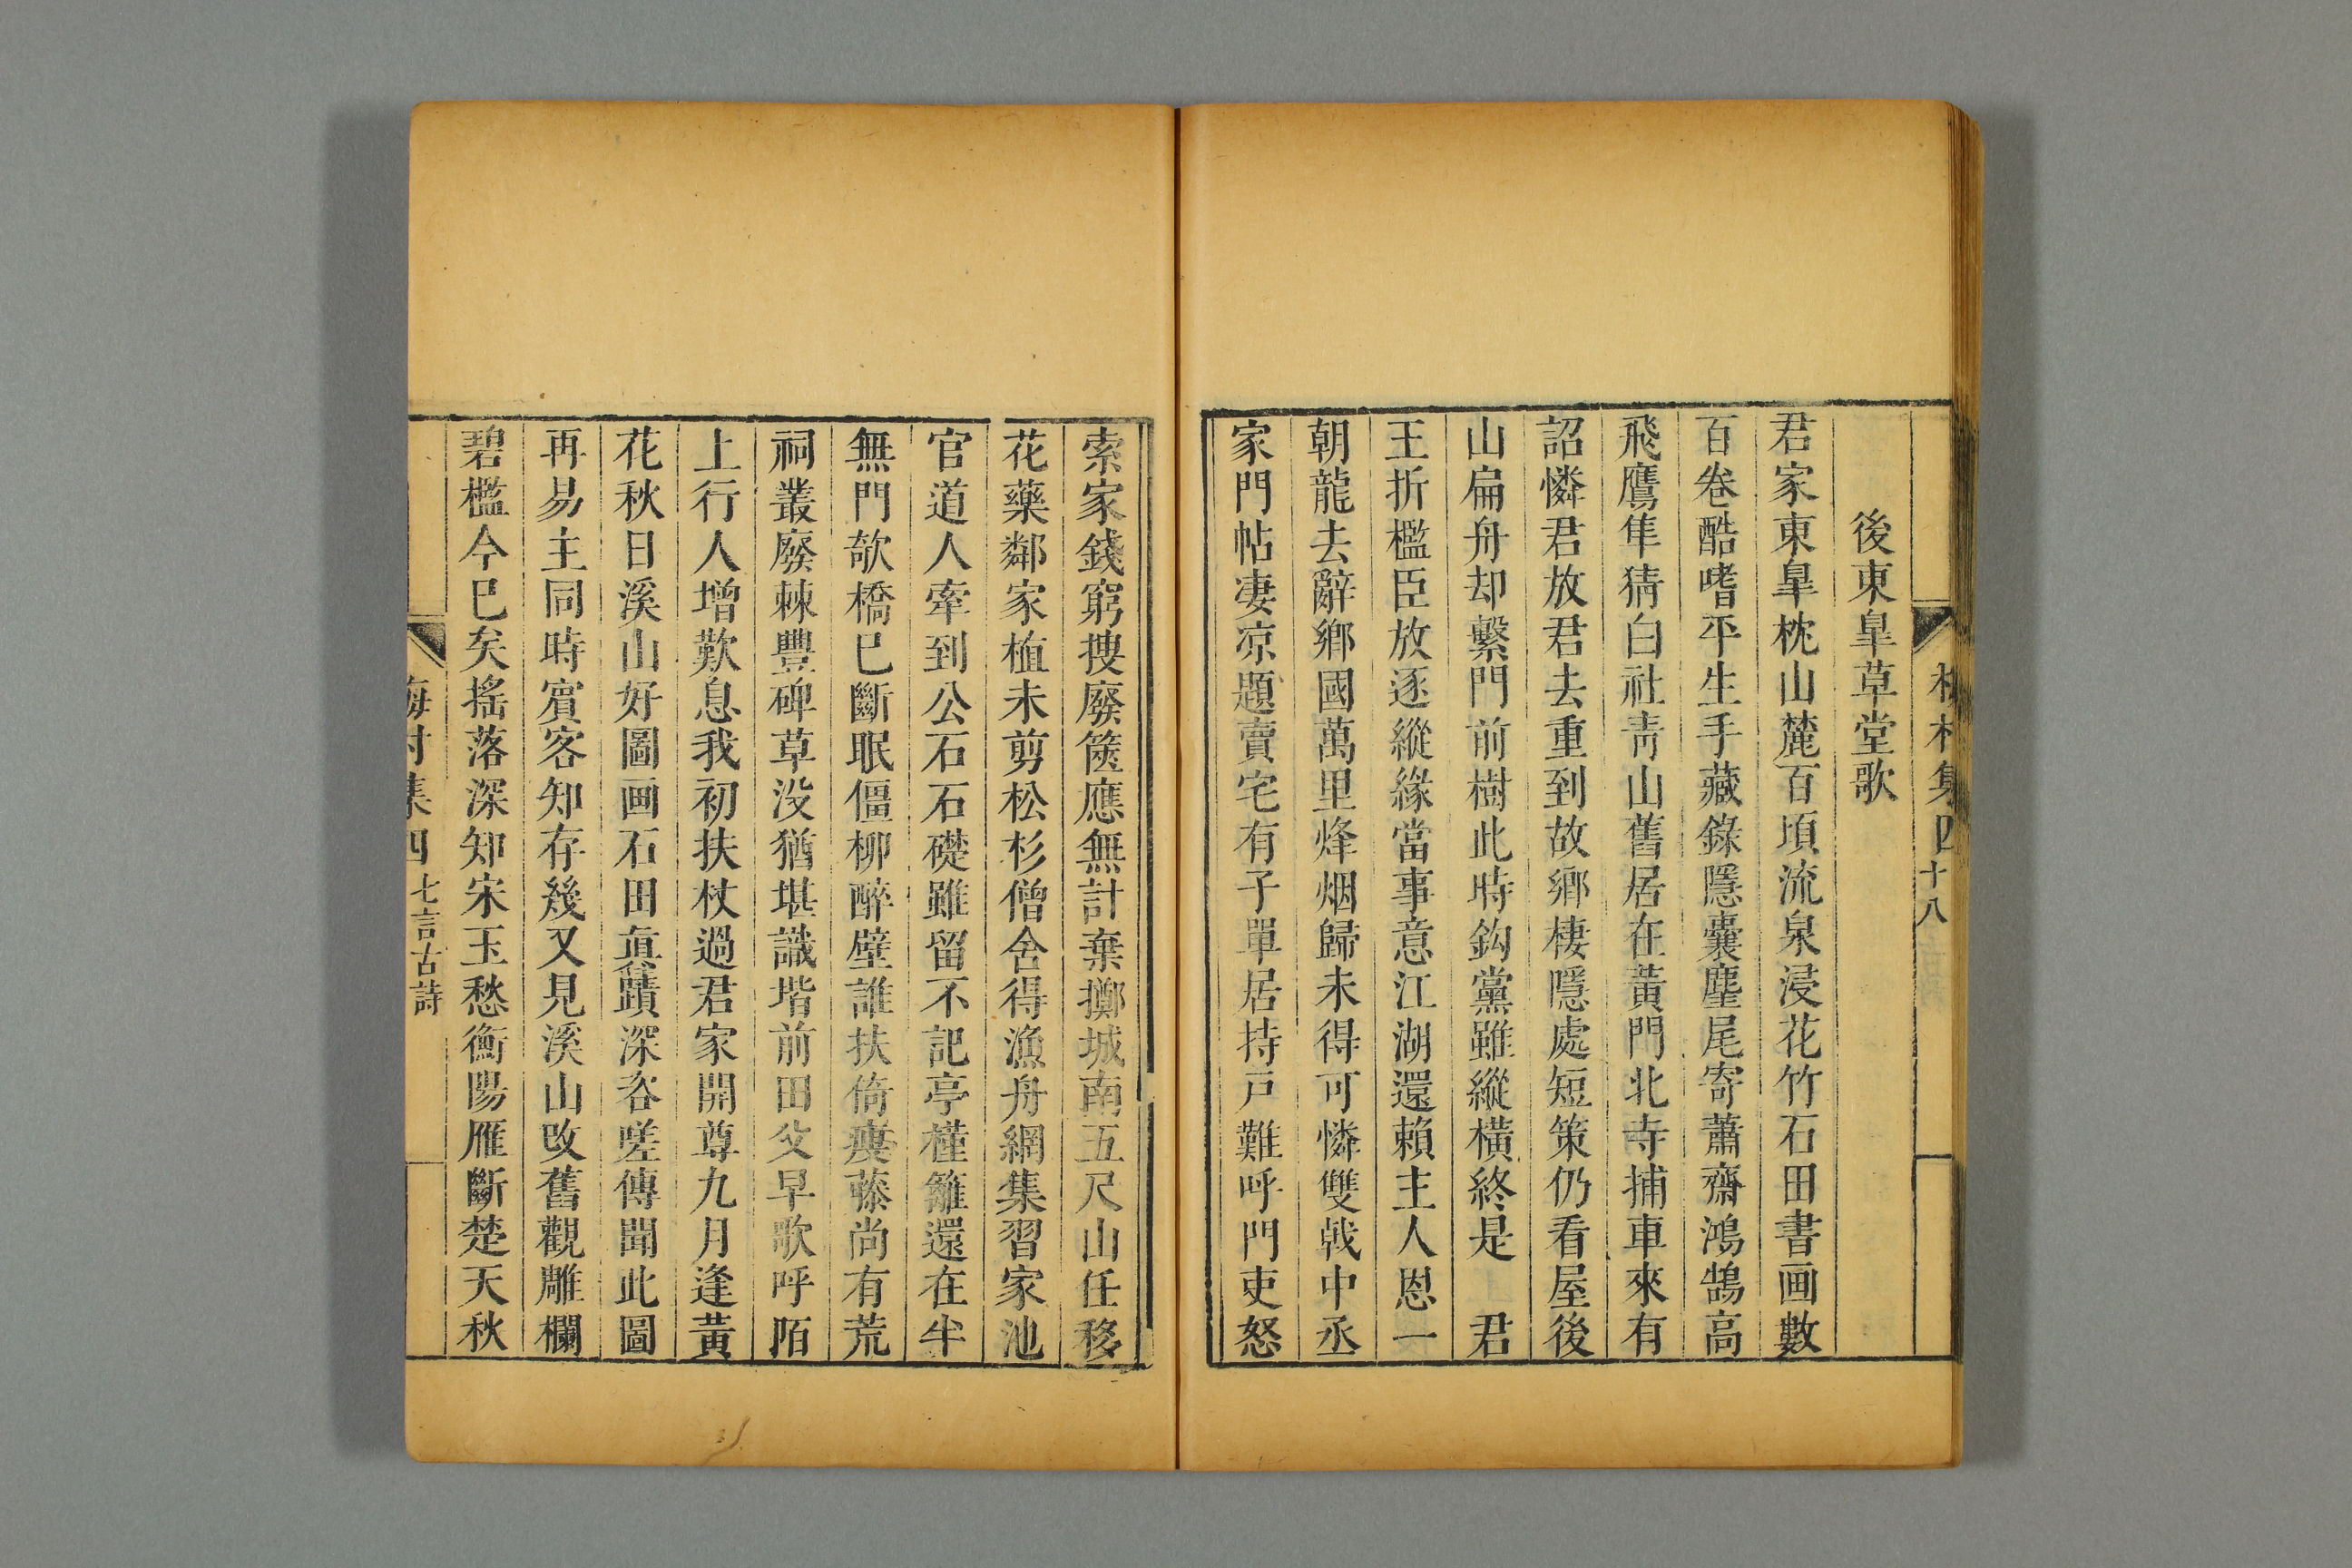 梅村集四十八
後東臯草堂歌
君家東臯枕山麓百頃流泉浸花竹石田書画數
百卷酷嗜平生手藏錄隱囊麈尾寄蕭齋鴻鵠高
飛鷹隼猜白社靑山舊居在黃門北寺捕車來有
詔憐君放君去重到故鄉棲隱處短策仍看屋後
山扁舟却繫門前樹此時鈎黨雖縱橫終是　君
王折檻臣放逐縱緣當事意江湖還賴主人恩一
朝龍去辭鄉國萬里烽烟歸未得可憐雙戟中丞
家門帖凄凉題賣宅有子單居持戸難呼門吏怒
索家錢窮搜廢篋應無計棄擲城南五尺山任移
花藥鄰家植未剪松杉僧舍得漁舟網集習家池
官道人牽到公石石礎雖留不記亭槿籬還在半
無門欹橋已斷眠僵柳醉壁誰扶倚瘦藤尚有荒
祠叢廢棘豐碑草没猶堪識堦前田父早歌呼陌
上行人增歎息我初扶杖過君家開尊九月逢黃
花秋日溪山好圖画石田眞蹟深咨嗟傳聞此圖
再易主同時賓客知存幾又見溪山攺舊觀雕欄
碧檻今已矣搖落深知宋玉愁衡陽雁斷楚天秋
梅村集四　七言古詩